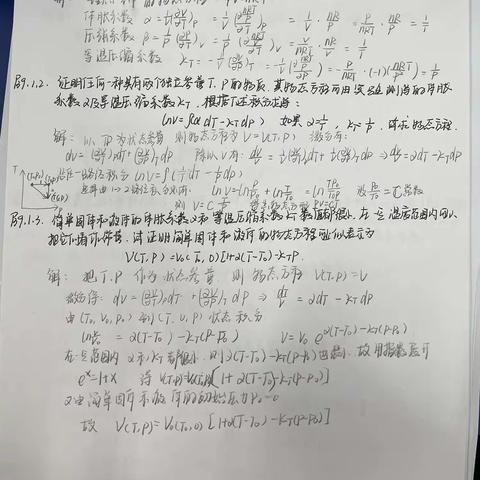 体胀系数 α = 1/V (∂V/∂T)_P = 1/V (∂(nRT/P)/∂T)_P = 1/V · nR/P = P/nRT · nR/P = 1/T
压强系数 β = 1/P (∂P/∂T)_V = 1/P (∂(nRT/V)/∂T)_V = V/nRT · nR/V = 1/T
等温压缩系数 κ_T = -1/V (∂V/∂P)_T = -1/V (∂(nRT/P)/∂P)_T = -P/nRT · (-1)(nRT/P²) = 1/P
例1.2. 证明任何一种具有两个独立参量T.P的物质,其物态方程可由实验测得的体胀
系数α及等温压缩系数κ_T,根据下述积分求得:
lnV=∫(αdT-κ_TdP) 如果 α=1/T, κ_T=1/P, 试求物态方程.
解: 以T.P为状态参量 则物态方程为V=V(T,P) 微分有:
dV=(∂V/∂T)_P dT+(∂V/∂P)_T dP 除以V有: dV/V=1/V(∂V/∂T)_P dT+1/V(∂V/∂P)_T dP ⇒ dV/V=αdT-κ_TdP
积分 lnV=∫(1/T dT-1/P dP)
例1.3. 简单固体和液体的体胀系数α和等温压缩系数κ_T数值都很小,在一定温度范围内可以
把它们看作常量. 试证明简单固体和液体的物态方程可近似表示为
V(T,P)=V₀(T₀,0)[1+α(T-T₀)-κ_TP].
解: 把T.P作为状态参量, 则物态方程 V(T.P)=V
微分得: dV=(∂V/∂T)_P dT+(∂V/∂P)_T dP ⇒ dV/V=αdT-κ_TdP
由(T₀,V₀,P₀)到(T,V,P)状态积分
ln V/V₀ = α(T-T₀)-κ_T(P-P₀) V=V₀ e^{α(T-T₀)-κ_T(P-P₀)}
在一定范围内 α和κ_T都很小, 则α(T-T₀)-κ_T(P-P₀)也很小, 故用指数展开
e^x=1+x 得 [1+α(T-T₀)-κ_T(P-P₀)]
又由简单固体和液体的初始压力P₀=0
故 V(T,P)=V₀(T₀,0)[1+α(T-T₀)-κ_T(P-P₀)]